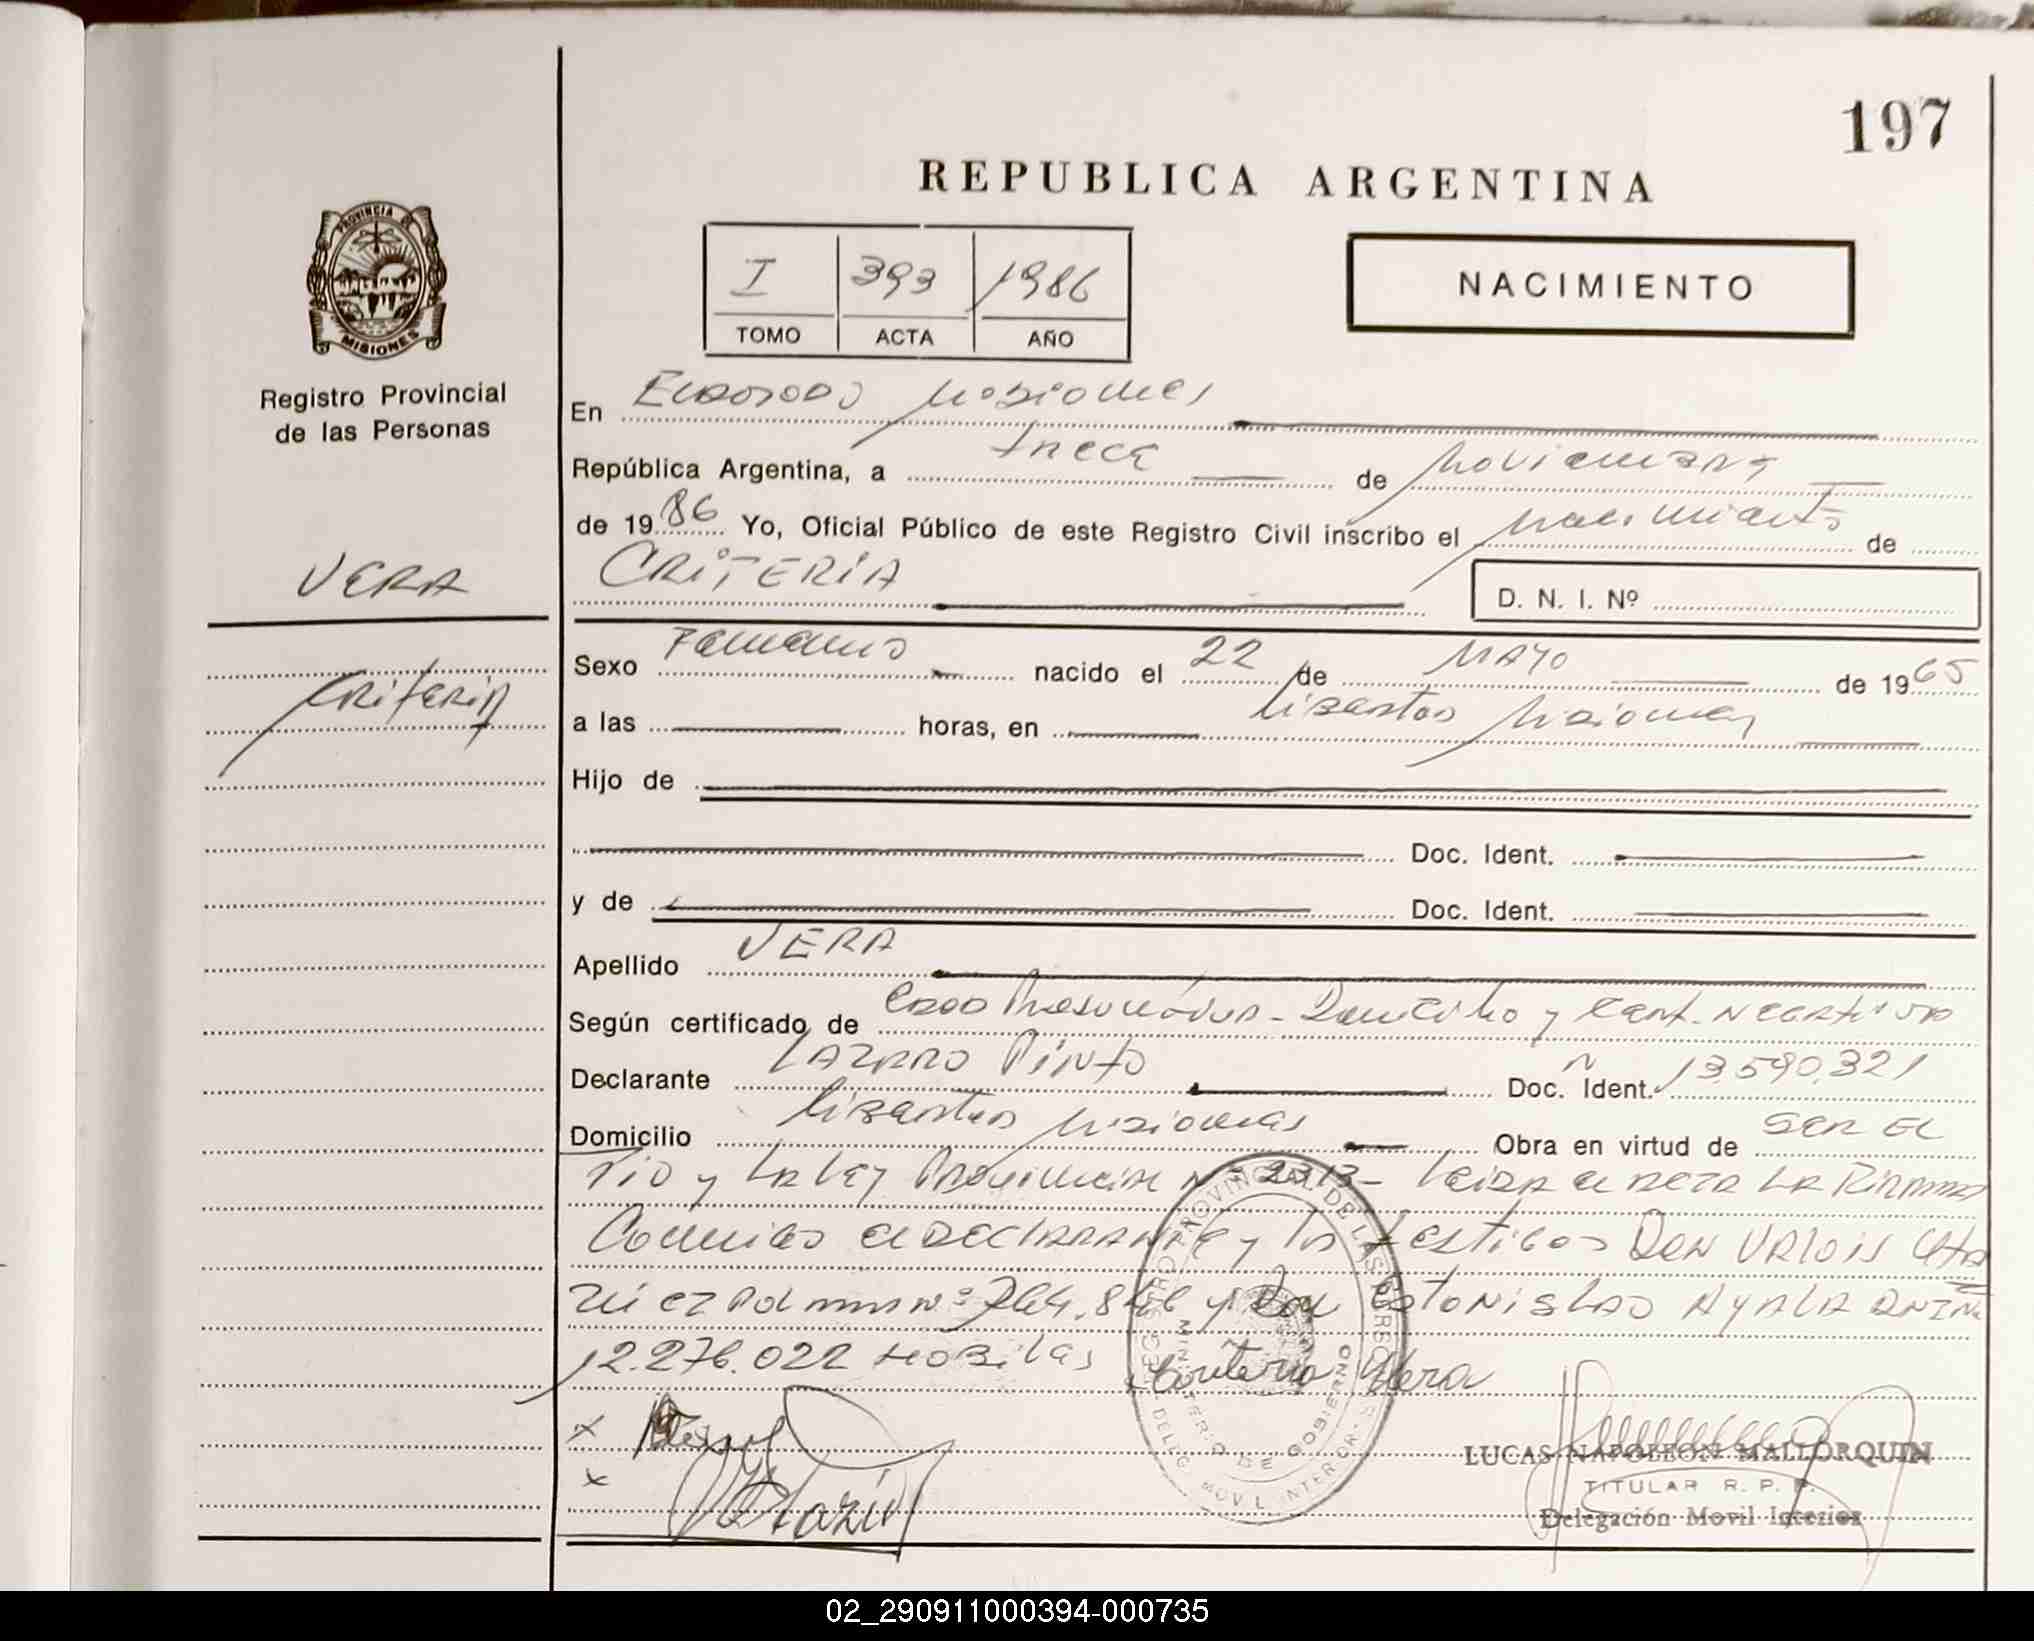 197
REPUBLICA ARGENTINA
PROVINCIA DE
MISIONES
Registro Provincial
de las Personas
I 393 1986
TOMO ACTA AÑO
NACIMIENTO
En Eldorado Misiones
República Argentina, a trece de noviembre
de 1986 Yo, Oficial Público de este Registro Civil inscribo el nacimiento de
CRITERIA
D. N. I. Nº
VERA
Criteria
Sexo Femenino nacido el 22 de MAYO de 1965
a las horas, en Libertad Misiones
Hijo de
Doc. Ident.
y de Doc. Ident.
Apellido VERA
Según certificado de Edad Presunta - Domicilio y Cert. Negativo
Declarante LAZARO PINTO Doc. Ident. Nº 13.590.321
Domicilio Libertad Misiones Obra en virtud de SER EL
TIO y LA LEY Provincial Nº 2313 - Leida el ACTA LA FIRMAN
Conmigo el DECLARANTE y los testigos Don
y Don Estanislao AYALA DNI Nº
12.276.022 Criteria Vera
REGISTRO PROVINCIAL DE LAS PERSONAS
MINISTERIO DE GOBIERNO
DELEG. MOVIL INTERIOR
LUCAS NAPOLEON MALLORQUIN
TITULAR R. P. P.
Delegación Movil Interior
02_290911000394-000735